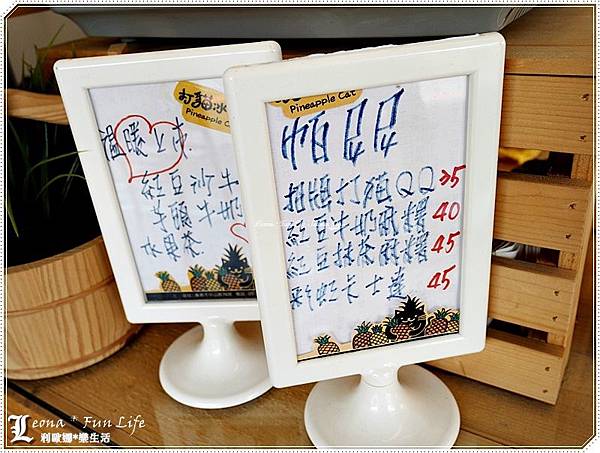 打貓冰
Pineapple C
溫暖上市
紅豆沙牛
芋頭牛奶
水果茶
Pineapple Cat
帕昆
招牌打貓QQ 35
紅豆牛奶酥糬 40
紅豆抹茶酥糬 45
彩虹卡士達 45
Leona * Fun Life
利歐娜*樂生活